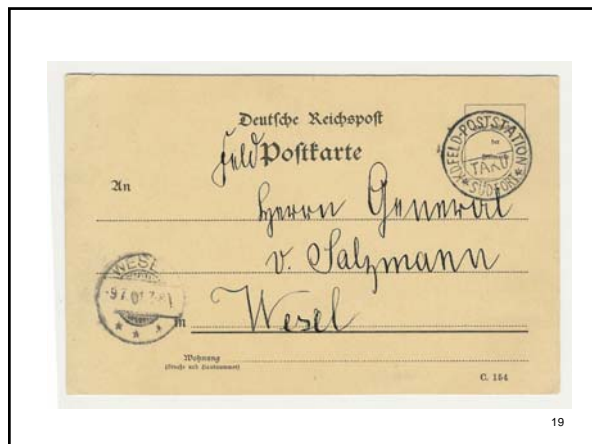 Deutsche Reichspost
Feld Postkarte
K.D. FELD-POSTSTATION
TAKU
* SÜDFORT *
An
Herrn General
v. Salzmann
WESEL
-9.7.01.
in Wesel
Wohnung
(Straße und Hausnummer)
C. 154
19